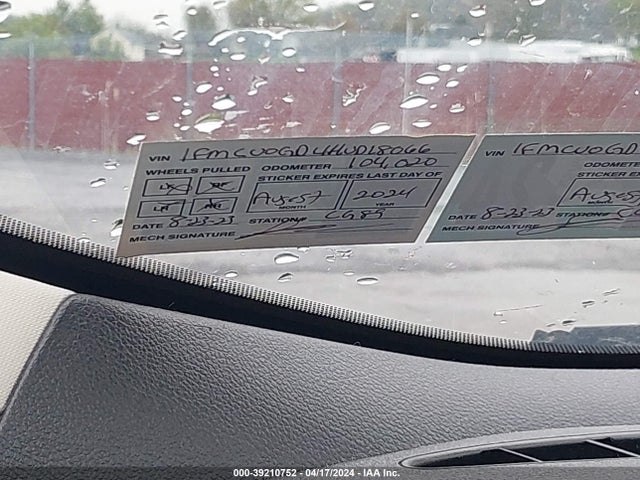 VIN 1FMCU0GD4HUD18066
WHEELS PULLED ODOMETER 104,020
STICKER EXPIRES LAST DAY OF
LF RF August 2024
MONTH YEAR
LR RR
DATE 8-23-23 STATION# CG89
MECH SIGNATURE
VIN 1FMCU0GD
WHEELS PULLED ODOMETER
STICKER EXPIRES
August
MONTH
DATE 8-23-23 STATION#
MECH SIGNATURE
000-39210752 - 04/17/2024 - IAA Inc.